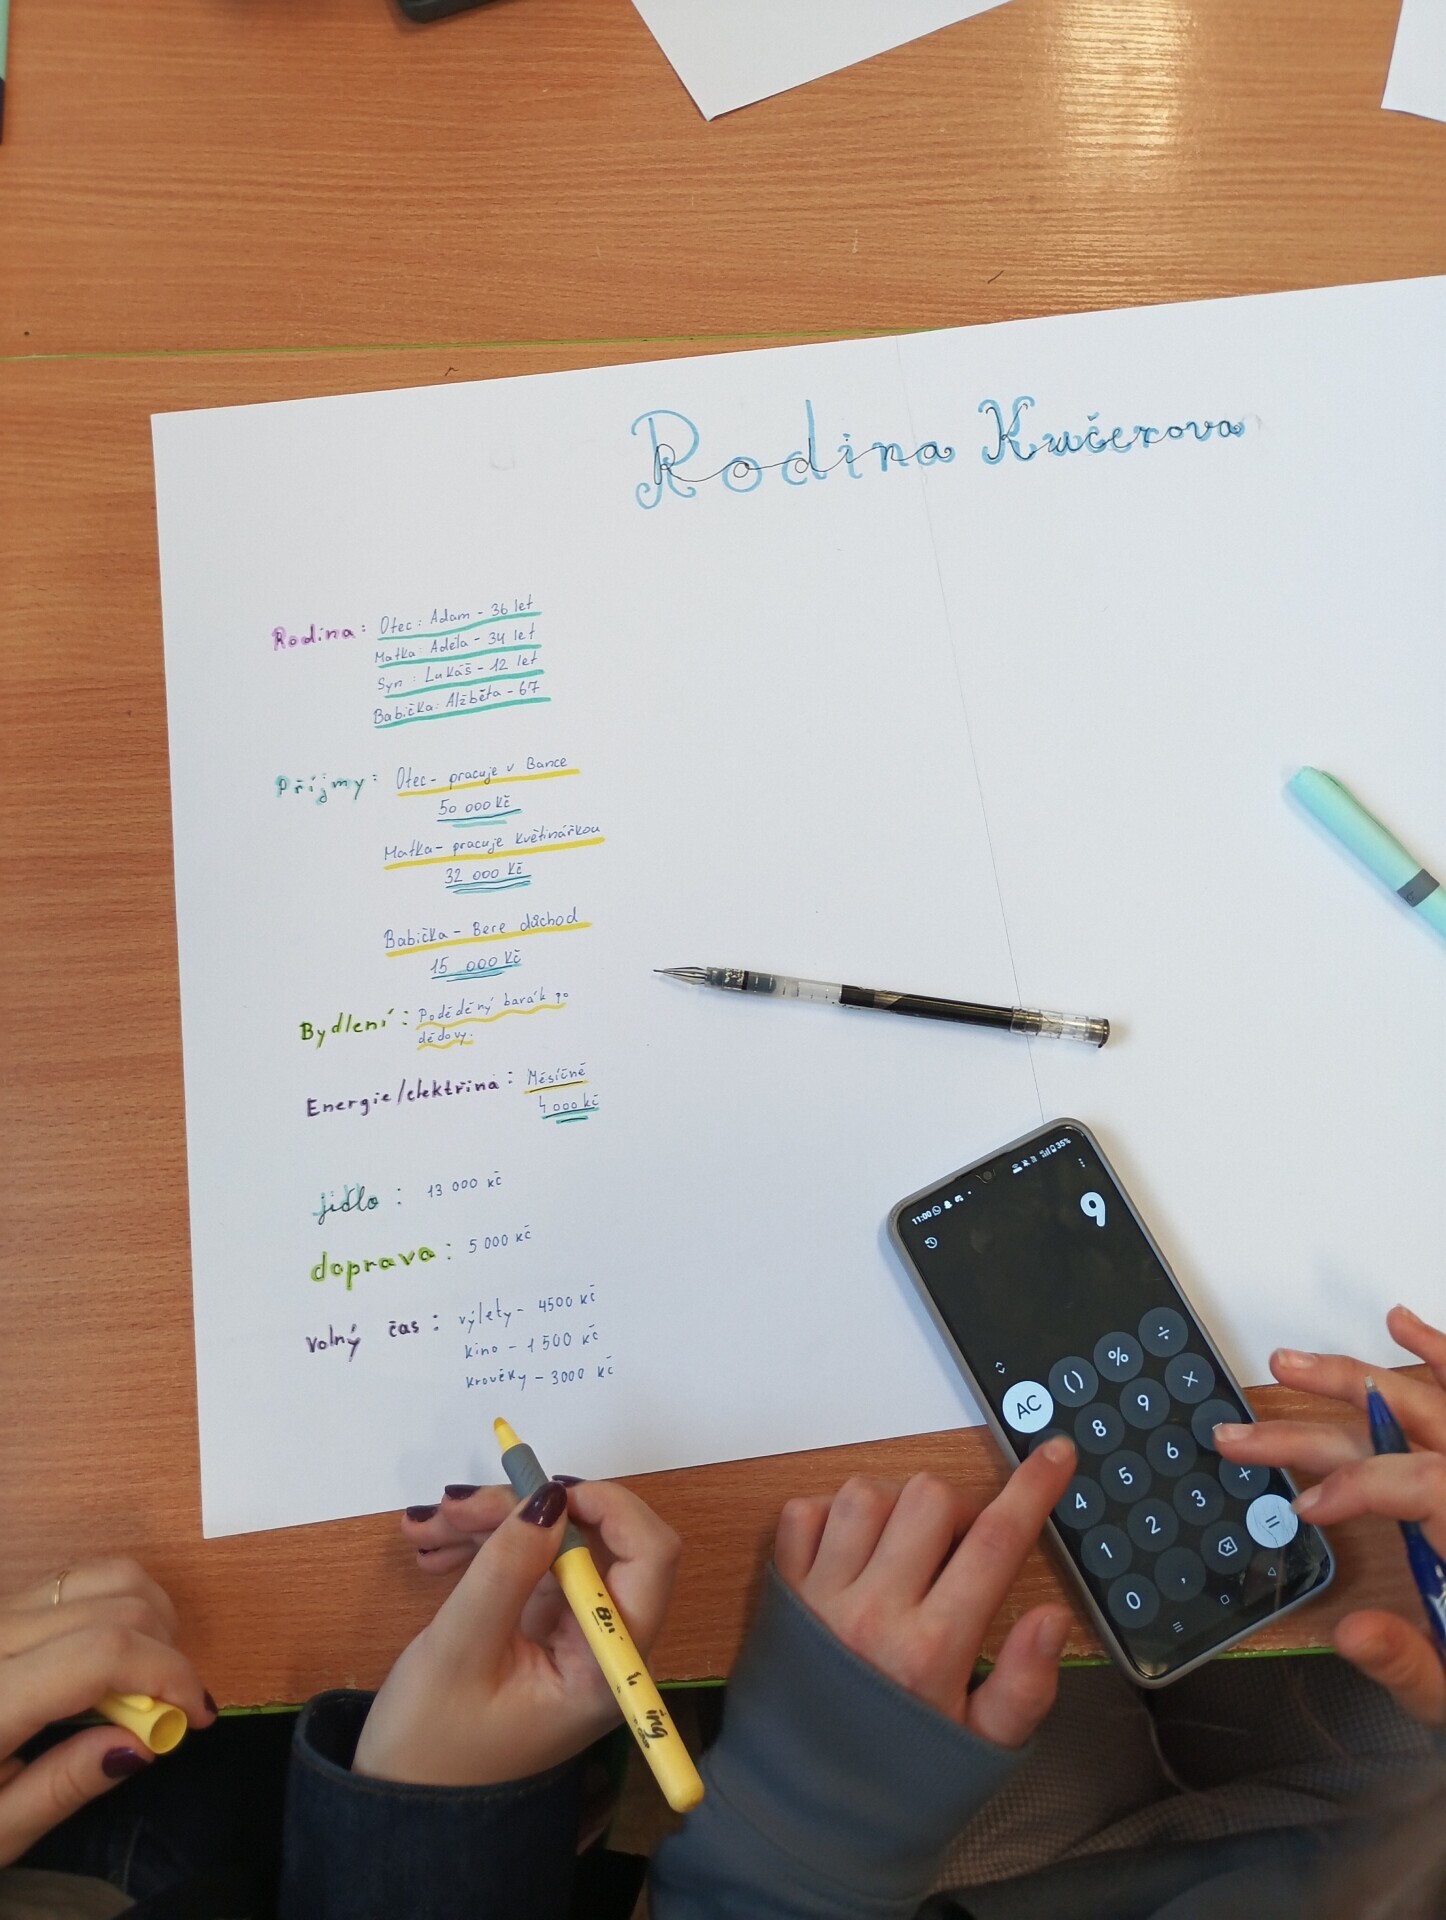 Rodina Kučerova
Rodina: Otec: Adam - 36 let
Matka: Adéla - 34 let
Syn: Lukáš - 12 let
Babička: Alžběta - 67
Příjmy: Otec - pracuje v Bance
50 000 Kč
Matka - pracuje květinářkou
32 000 Kč
Babička - Bere důchod
15 000 Kč
Bydlení: Poděděný barák po
dědovy.
Energie/elektřina: Měsíčně
4 000 kč
jídlo: 13 000 kč
doprava: 5 000 kč
volný čas: výlety - 4500 kč
kino - 1 500 kč
kroužky - 3000 kč
11:00 35%
9
AC () % ÷
8 9 ×
4 5 6
1 2 3 +
0 , =
ing